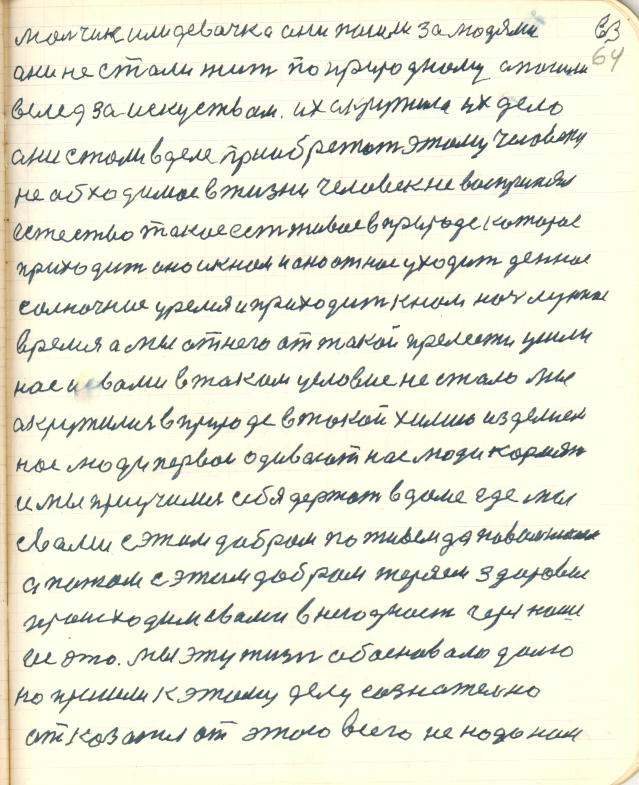 63
64
молчик или девачка ани пошли за людями
ани не стали жит по природному а пошли
вслед за искуствам. их акружила их дело
ани стали в деле приабретат этому человеку
не абходимае в жизни человек не васпринял
естество такое ест живое в природе каторае
приходит ано к нам и ано от нас уходит денное
солночние уремя и приходит к нам ноч лунние
время а мы от него от такой прелести ушли
нас и свами в таком условие не стало мы
акружилис в природе в такой химию изделием
нас люди первое одивают нас люди кормят
и мы приучилис себя держат в доме где мы
свами с этим дабром поживем да
а потом с этим дабром теряем здоровие
происходим свами в негодност через наше
все это. мы эту жизн обосновали долго
но пришли к этому делу сознателно
отказатся от этого всего не нада нам